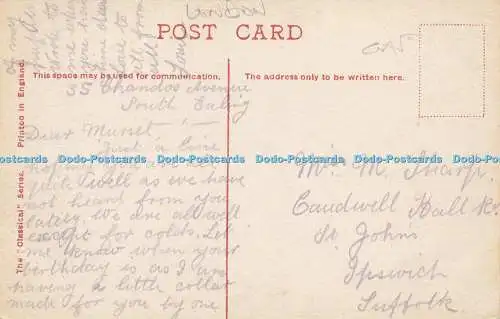 LONDON
POST CARD
This space may be used for communication.
The address only to be written here.
The "Classical" Series. Printed in England.
55 Chandos Avenue
South Ealing
Dear Muriel, —
Just a line
hoping you are
quite well as we have
not heard from you
lately. We are all well
except for colds. Let
me know when your
birthday is as I am
having a little collar
made for you by one
of my
Mr. M. Tharp.
Caudwell Hall Rd.
St John's
Ipswich
Suffolk.
Dads-Postcards Dads-Postcards Dads-Postcards Dads-Postcards Dads-Postcards Dads-Postcards